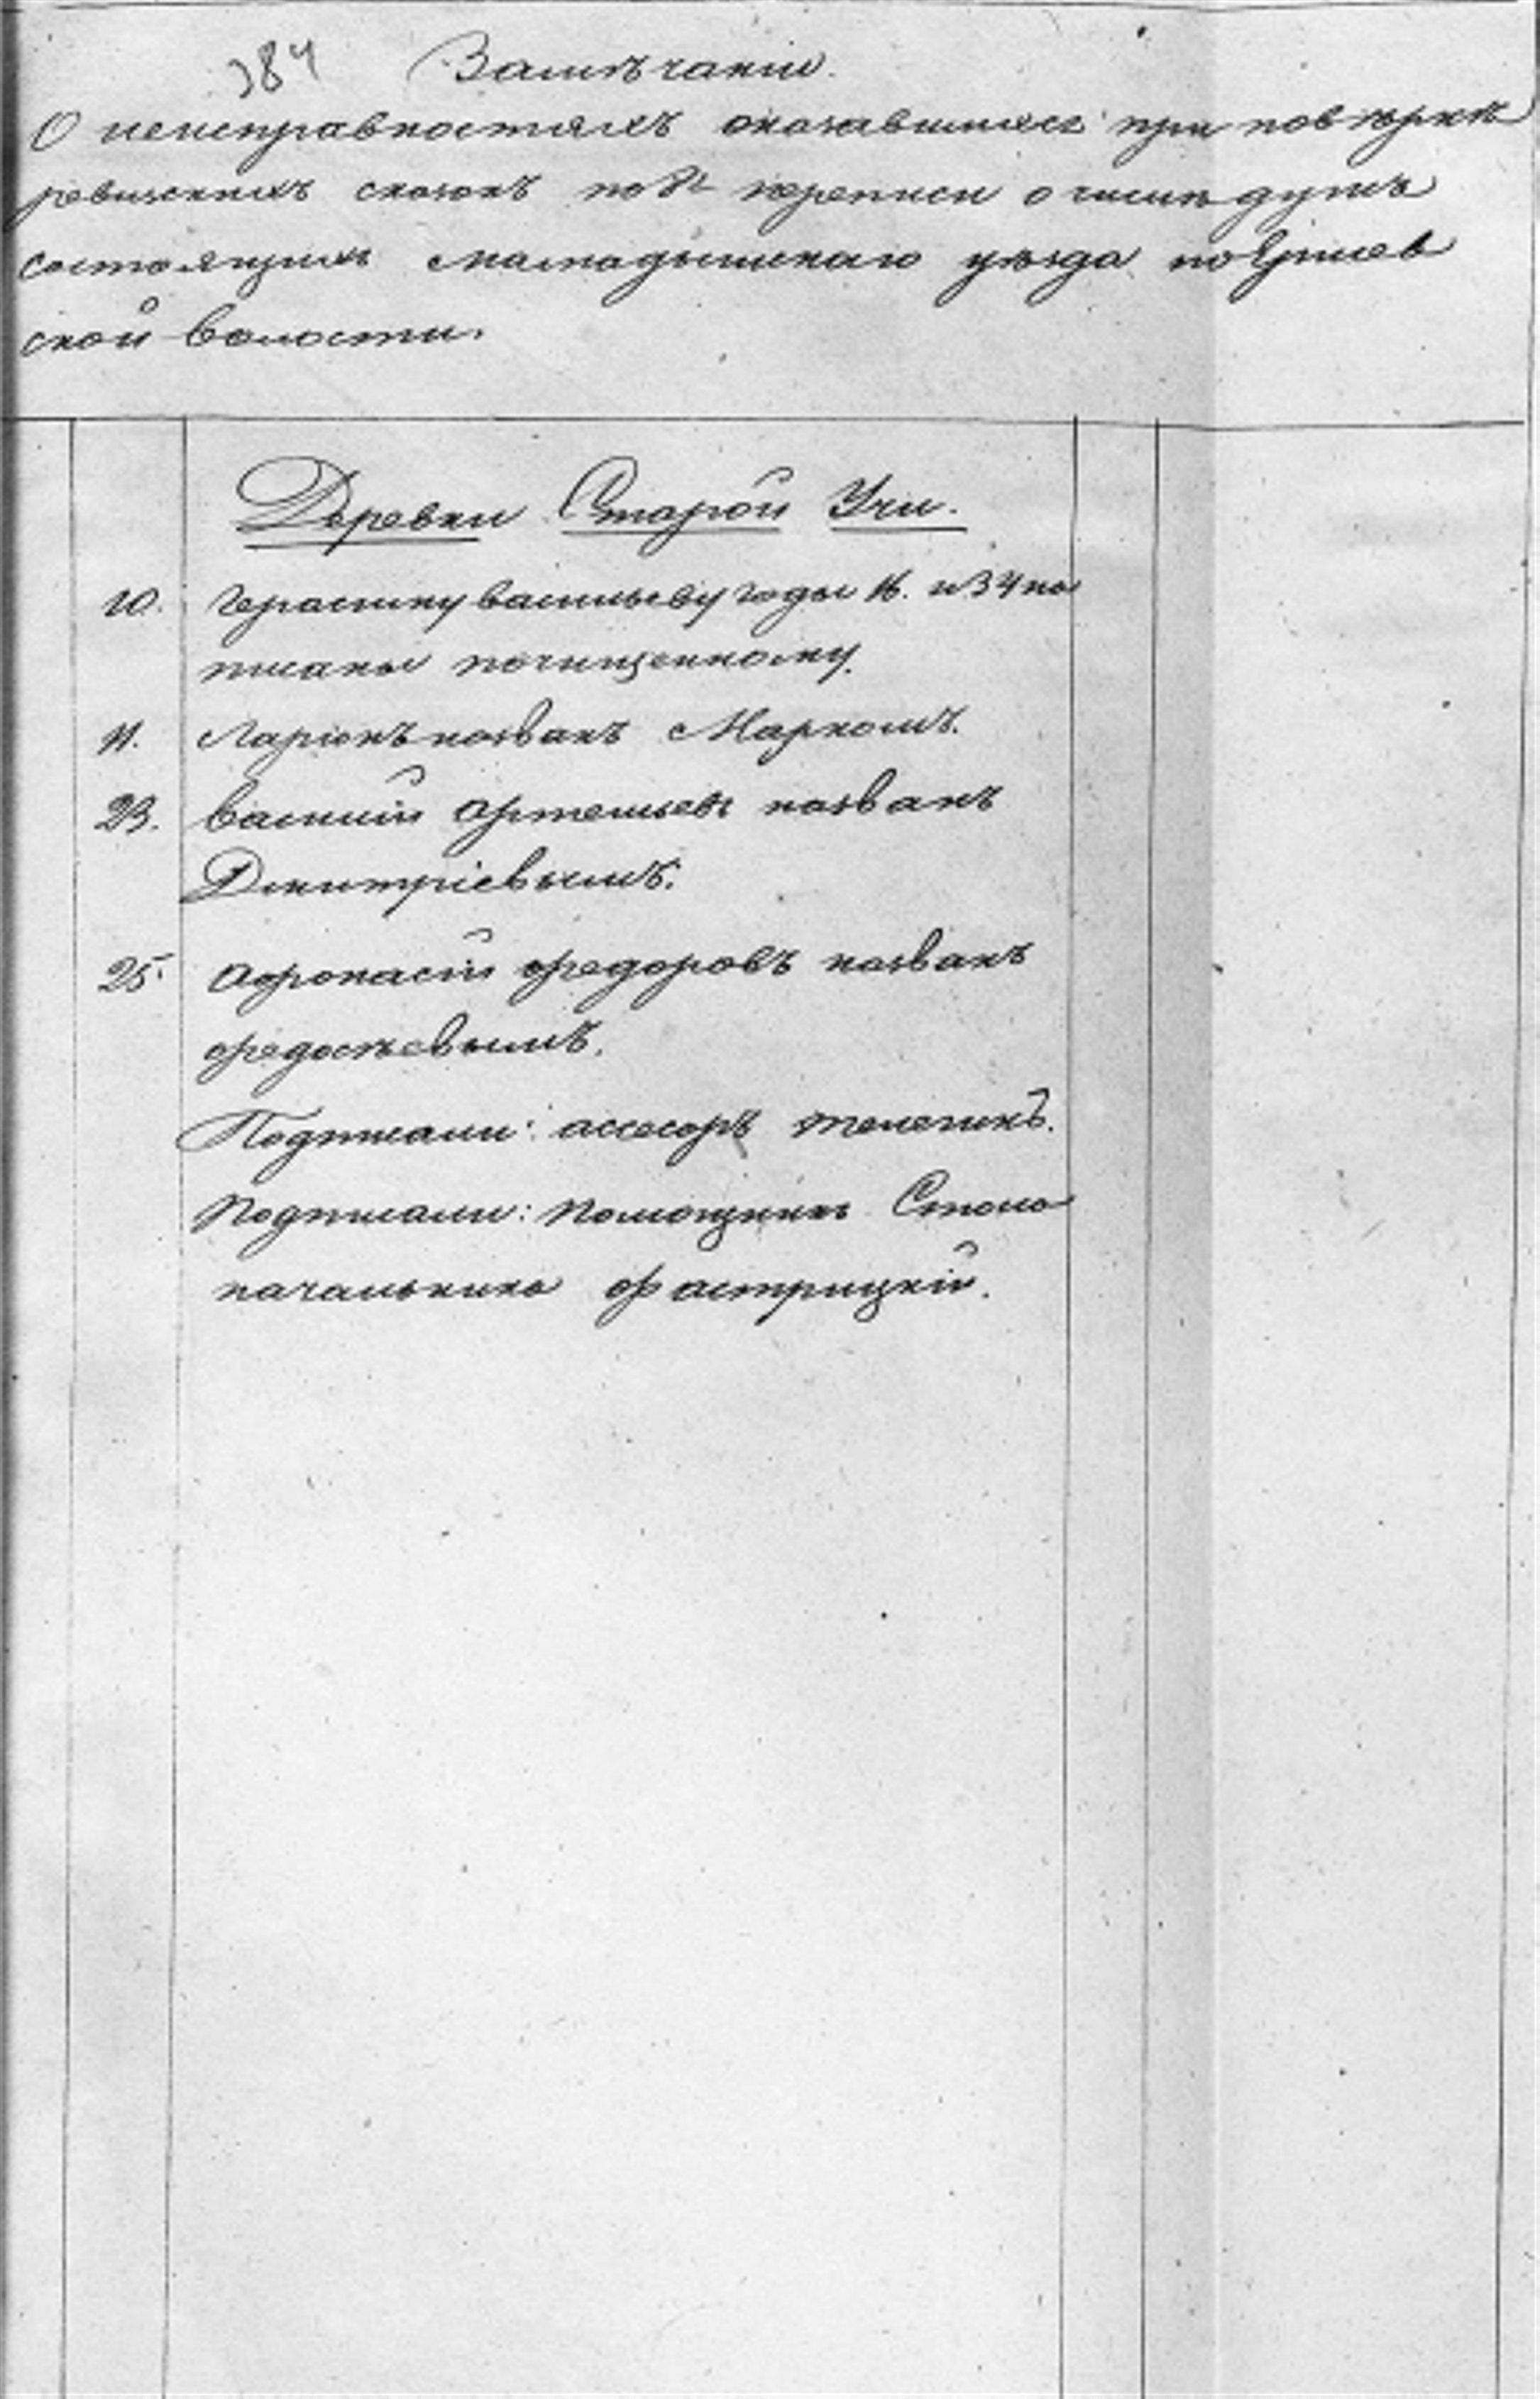 384 Замѣчаніи.
О неисправностяхъ оказавшихся при повѣркѣ
ревизскихъ сказокъ по 8й переписи о числѣ душъ
состоящихъ Мамадышскаго уѣзда по
ской волости.
Деревни Старой Учи.
10. Герасиму васильеву годы 16. и 34 на
писаны почищенному.
11. Ларіонъ названъ Маркомъ.
23. василій Артемьевъ названъ
Дмитріевымъ.
25. Афонасій федоровъ названъ
федосѣевымъ.
Подписали: ассесоръ Телегинъ.
Подписали: Помощникъ Столо
начальника фастрицкій.